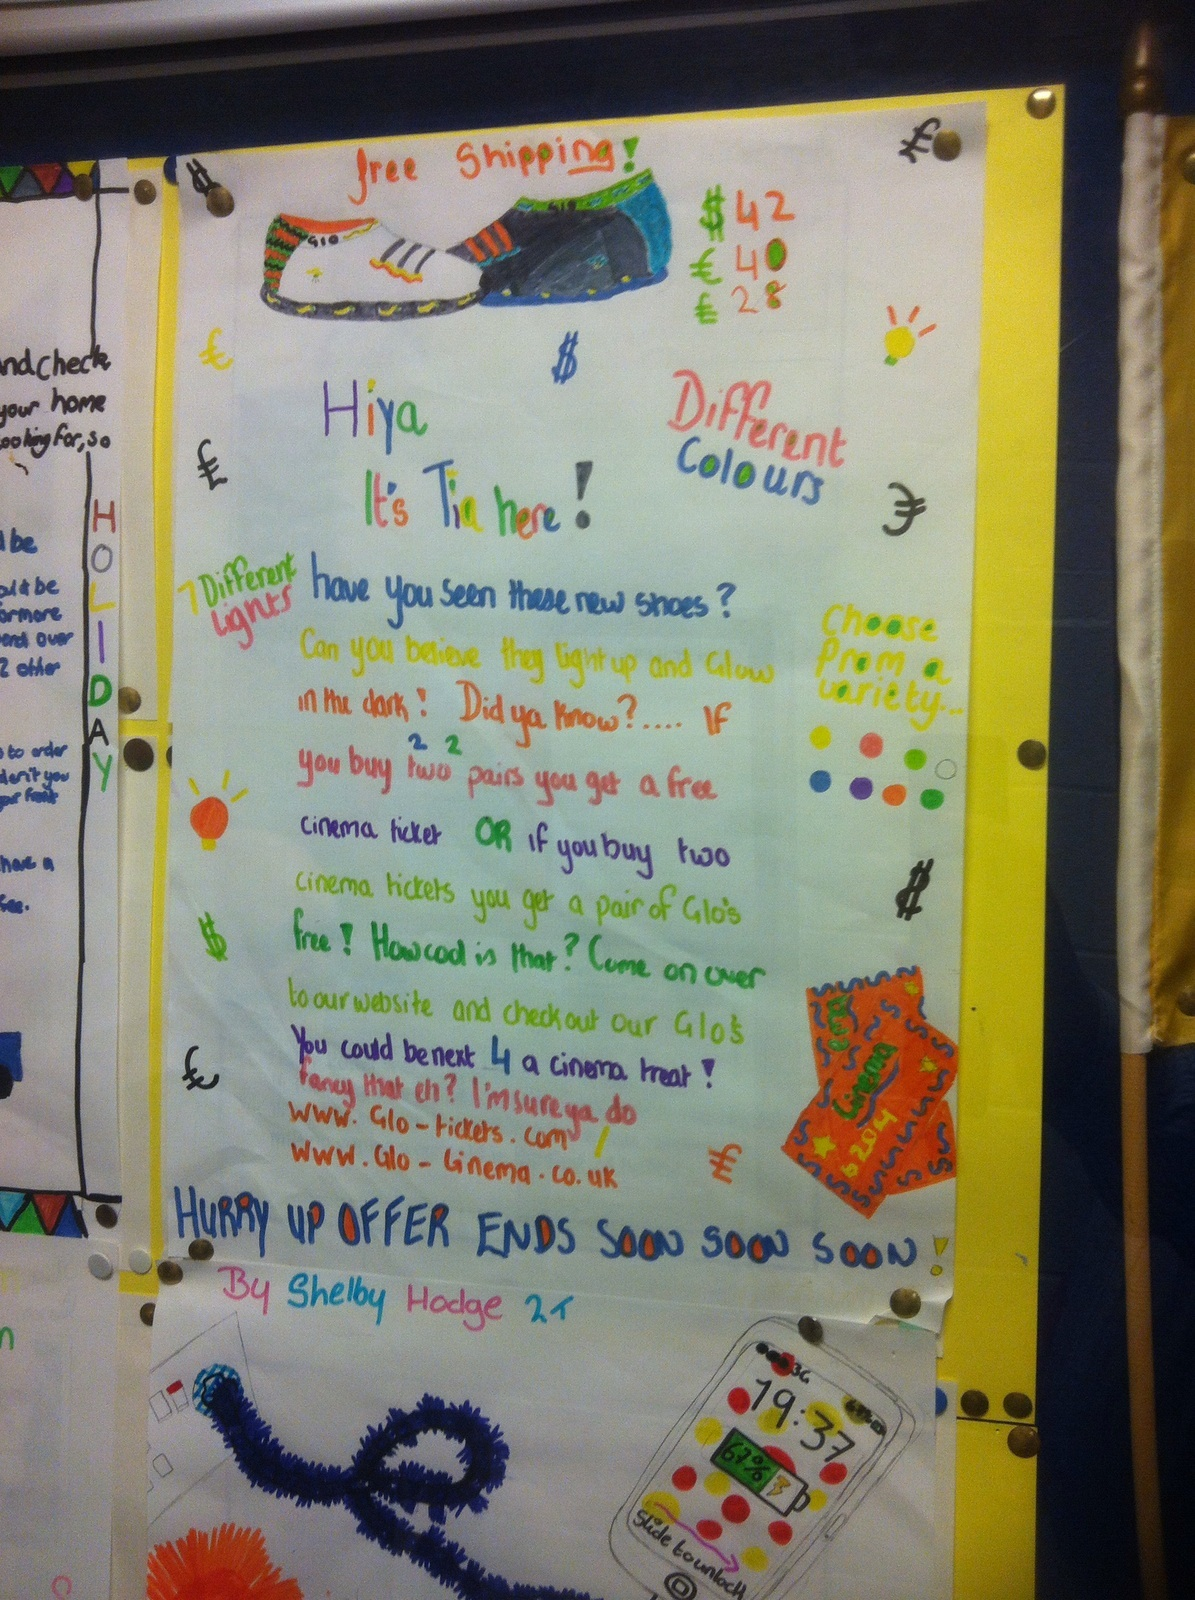 free Shipping!
GlO
GlO
$ 42
€ 40
£ 28
Hiya
It's Tia here!
Different
Colours
7 Different
Lights
have you seen these new shoes?
Can you believe they light up and Glow
in the dark! Did ya know?.... If
2 2
you buy two pairs you get a free
cinema ticket OR if you buy two
cinema tickets you get a pair of Glo's
free! How cool is that? Come on over
to our website and checkout our Glo's
You could be next 4 a cinema treat!
fancy that eh? I'm sure ya do
www.Glo-tickets.com /
www.Glo-Cinema.co.uk
Choose
From a
variety...
Cinema
HURRY UP OFFER ENDS SOON SOON SOON!
By Shelby Hodge 2T
3G
19:37
67%
Slide to unlock
And check
your home
looking for, so
HOLIDAY